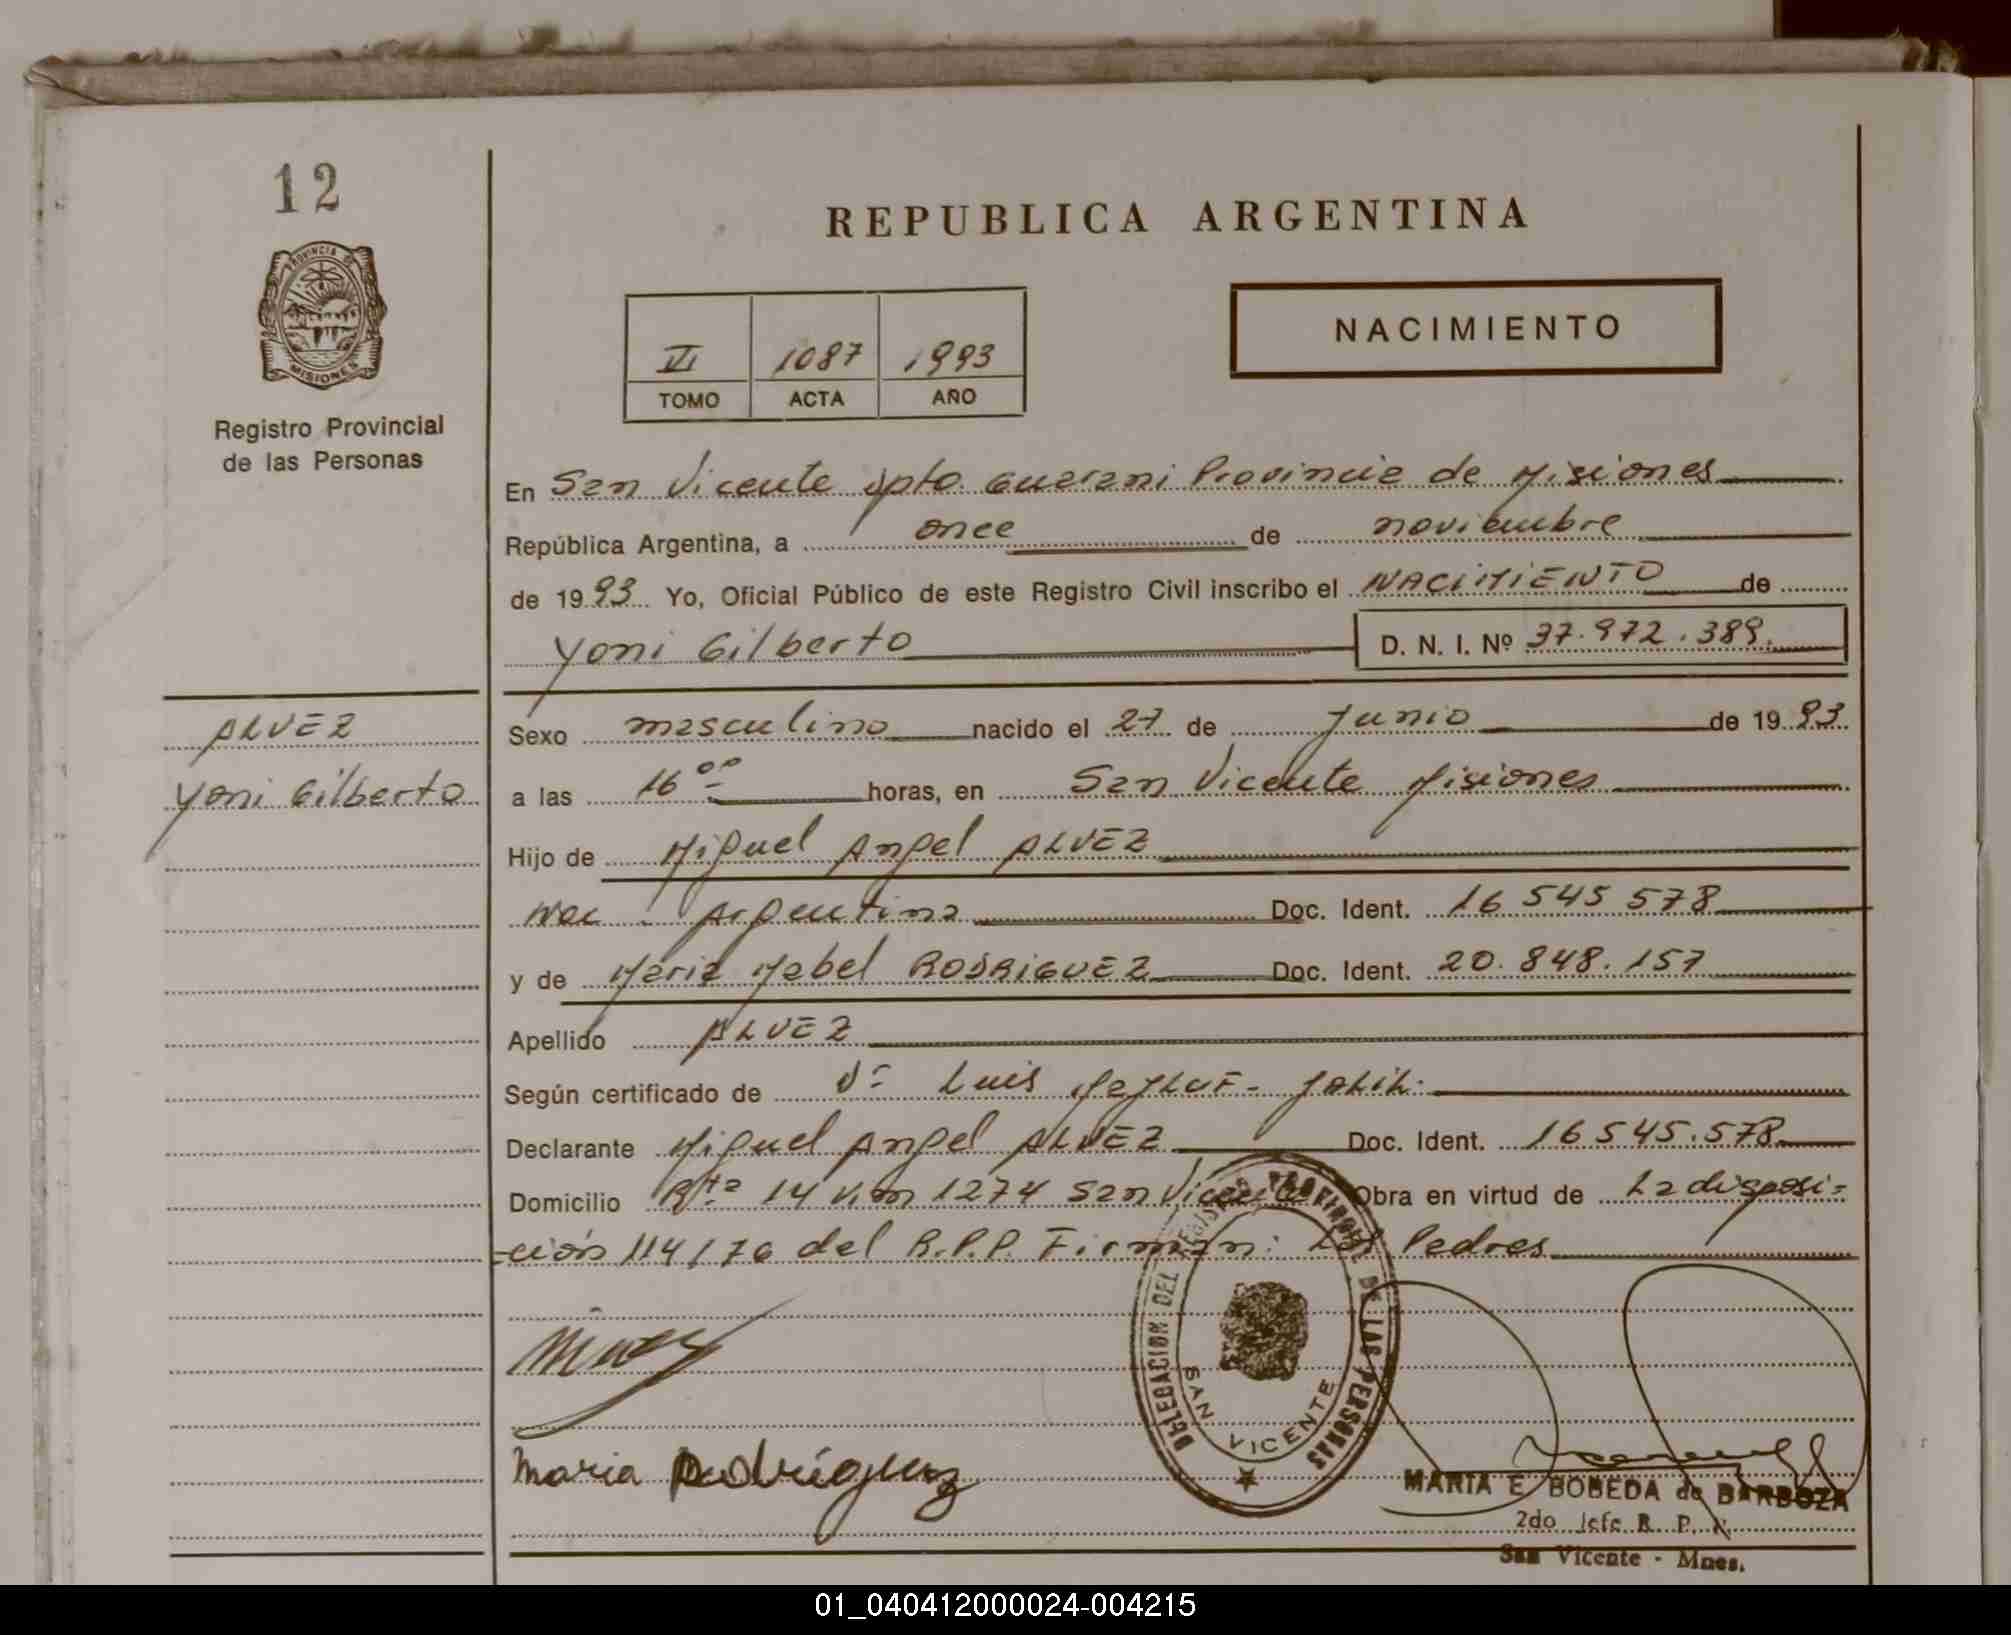 12
PROVINCIA DE
MISIONES
Registro Provincial
de las Personas
REPUBLICA ARGENTINA
VI 1087 1993
TOMO ACTA AÑO
NACIMIENTO
En San Vicente Dpto. Guarani Provincia de Misiones
República Argentina, a once de noviembre
de 1993 Yo, Oficial Público de este Registro Civil inscribo el NACIMIENTO de
Yoni Gilberto D. N. I. Nº 37.972.389.
ALVEZ
Yoni Gilberto
Sexo masculino nacido el 27 de Junio de 1993
a las 16°° horas, en San Vicente Misiones
Hijo de Miguel Angel ALVEZ
Nac. Argentina Doc. Ident. 16 545 578
y de Maria Mabel RODRIGUEZ Doc. Ident. 20.848.157
Apellido ALVEZ
Según certificado de Dr Luis JALIL.
Declarante Miguel Angel ALVEZ Doc. Ident. 16545.578
Domicilio Rta 14 Km 1274 San Vicente Obra en virtud de La disposi=
=ción 114/76 del R.P.P. Firman: Los Padres
DELEGACION DEL REGISTRO PROVINCIAL DE LAS PERSONAS
SAN VICENTE
Maria Rodríguez
MARIA E BOBEDA de BARBOZA
2do Jefe R. P. P.
San Vicente - Mnes.
01_040412000024-004215